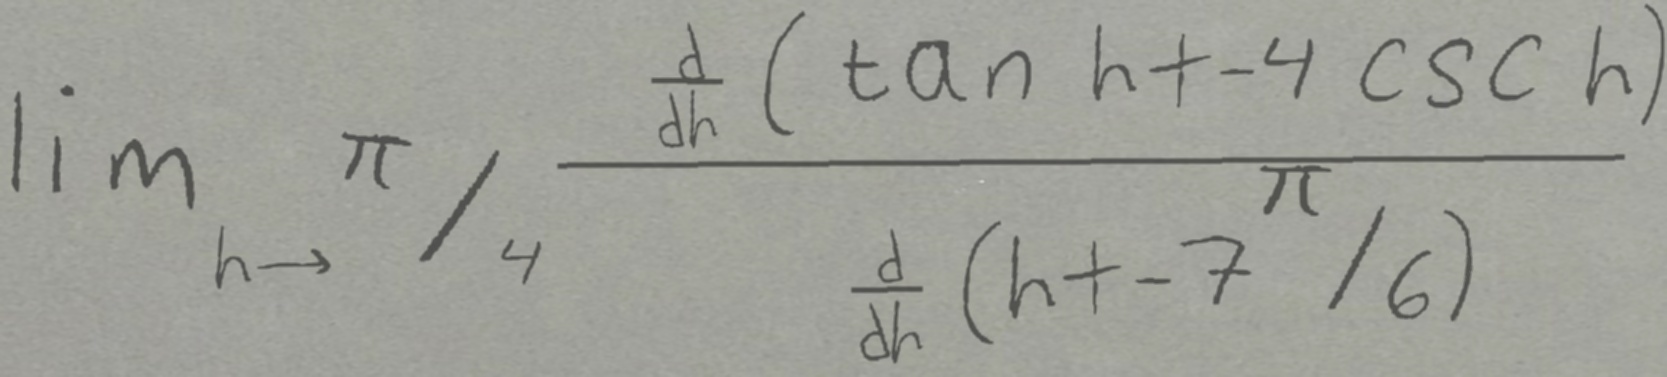 \lim_{h \to \pi/4} \frac{\frac{d}{dh}(\tan h + -4 \csc h)}{\frac{d}{dh}(h + -7\pi/6)}